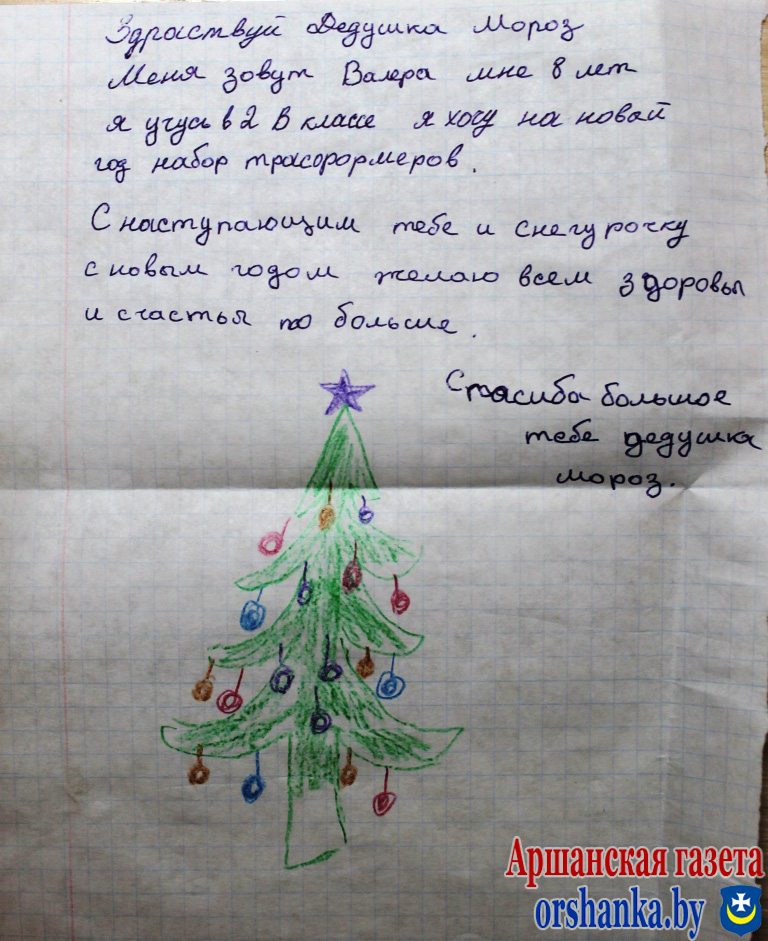 Здраствуй Дедушка Мороз
Меня зовут Валера мне 8 лет
я учусь в 2 В классе я хочу на новай
год набор трасформеров.
С наступающим тебе и снегурочку
с новым годом желаю всем здоровья
и счастья по больше.
Спасиба большое
тебе дедушка
мороз.
Аршанская газета
orshanka.by